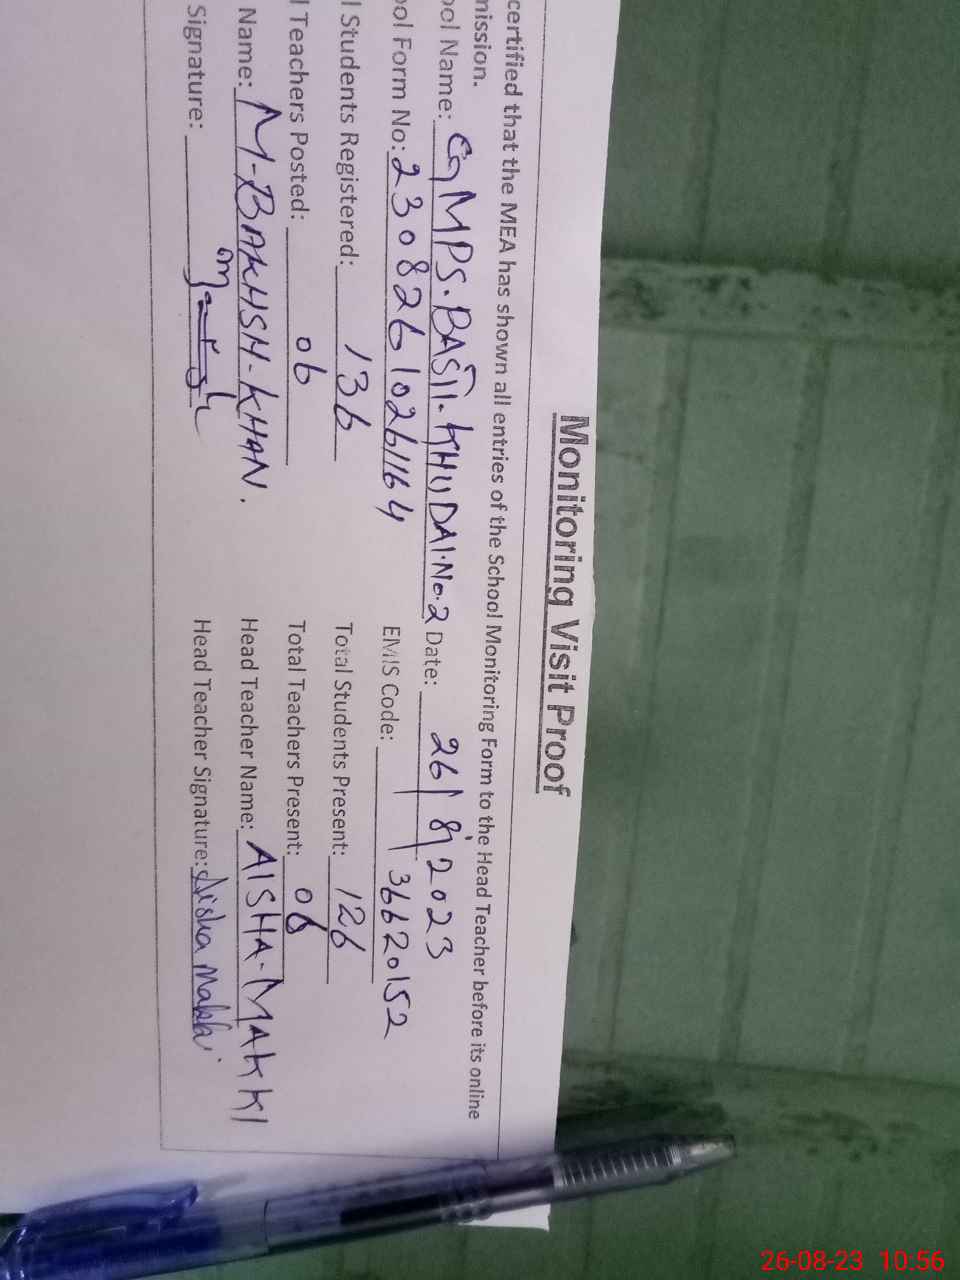 Monitoring Visit Proof
certified that the MEA has shown all entries of the School Monitoring Form to the Head Teacher before its online
mission.
ool Name: GGMPS.BASTI.KHUDAI.No.2 Date: 26/8/2023
ool Form No: 23082610261164 EMIS Code: 36620152
l Students Registered: 136 Total Students Present: 126
l Teachers Posted: 06 Total Teachers Present: 06
Name: M-BAKHSH-KHAN. Head Teacher Name: AISHA-MAKKI
Signature: Head Teacher Signature: Aisha Makki
26-08-23 10:56